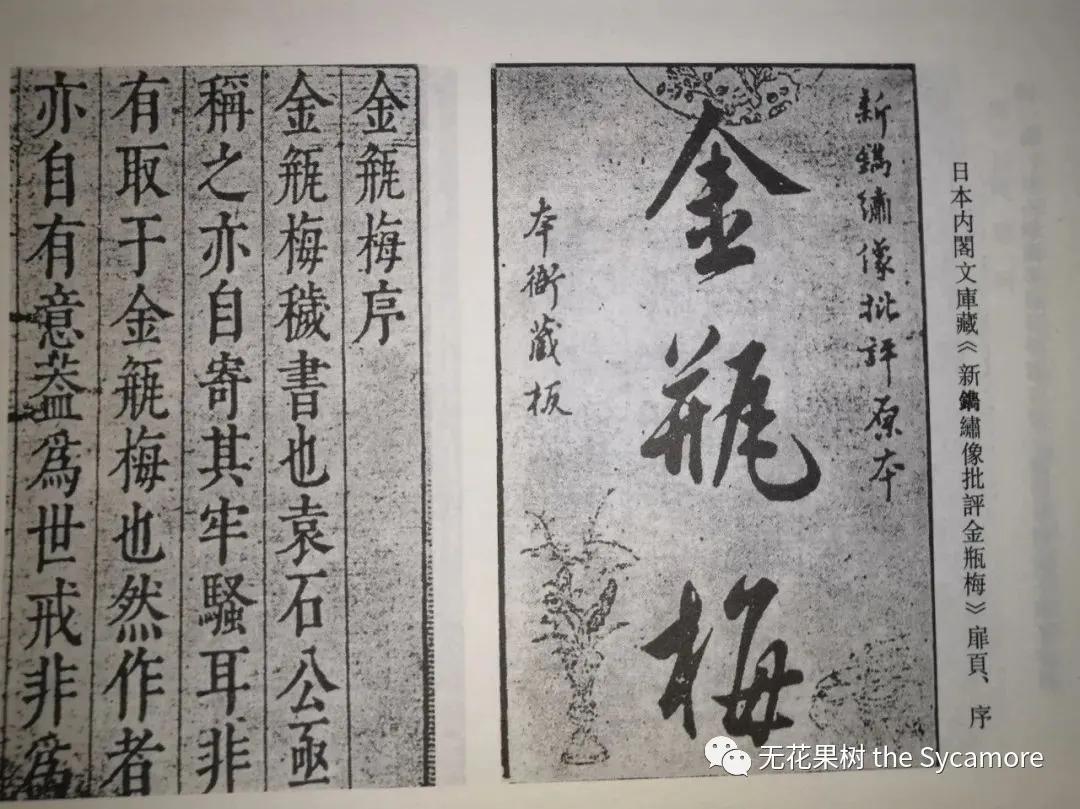 日本内閣文庫藏《新鐫繡像批評金瓶梅》扉頁、序
新鐫繡像批評原本
金瓶梅
本衙藏板
金瓶梅序
金瓶梅穢書也袁石公亟
稱之亦自寄其牢騷耳非
有取于金瓶梅也然作者
亦自有意葢爲世戒非爲
无花果树 the Sycamore